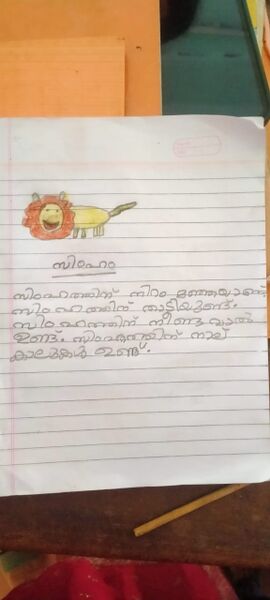 സിംഹം
സിംഹത്തിന് നിറം മഞ്ഞയാണ്.
സിംഹത്തിന് താടിയുണ്ട്.
സിംഹത്തിന് നീണ്ട വാൽ
ഉണ്ട്. സിംഹത്തിന് നാല്
കാലുകൾ ഉണ്ട്.